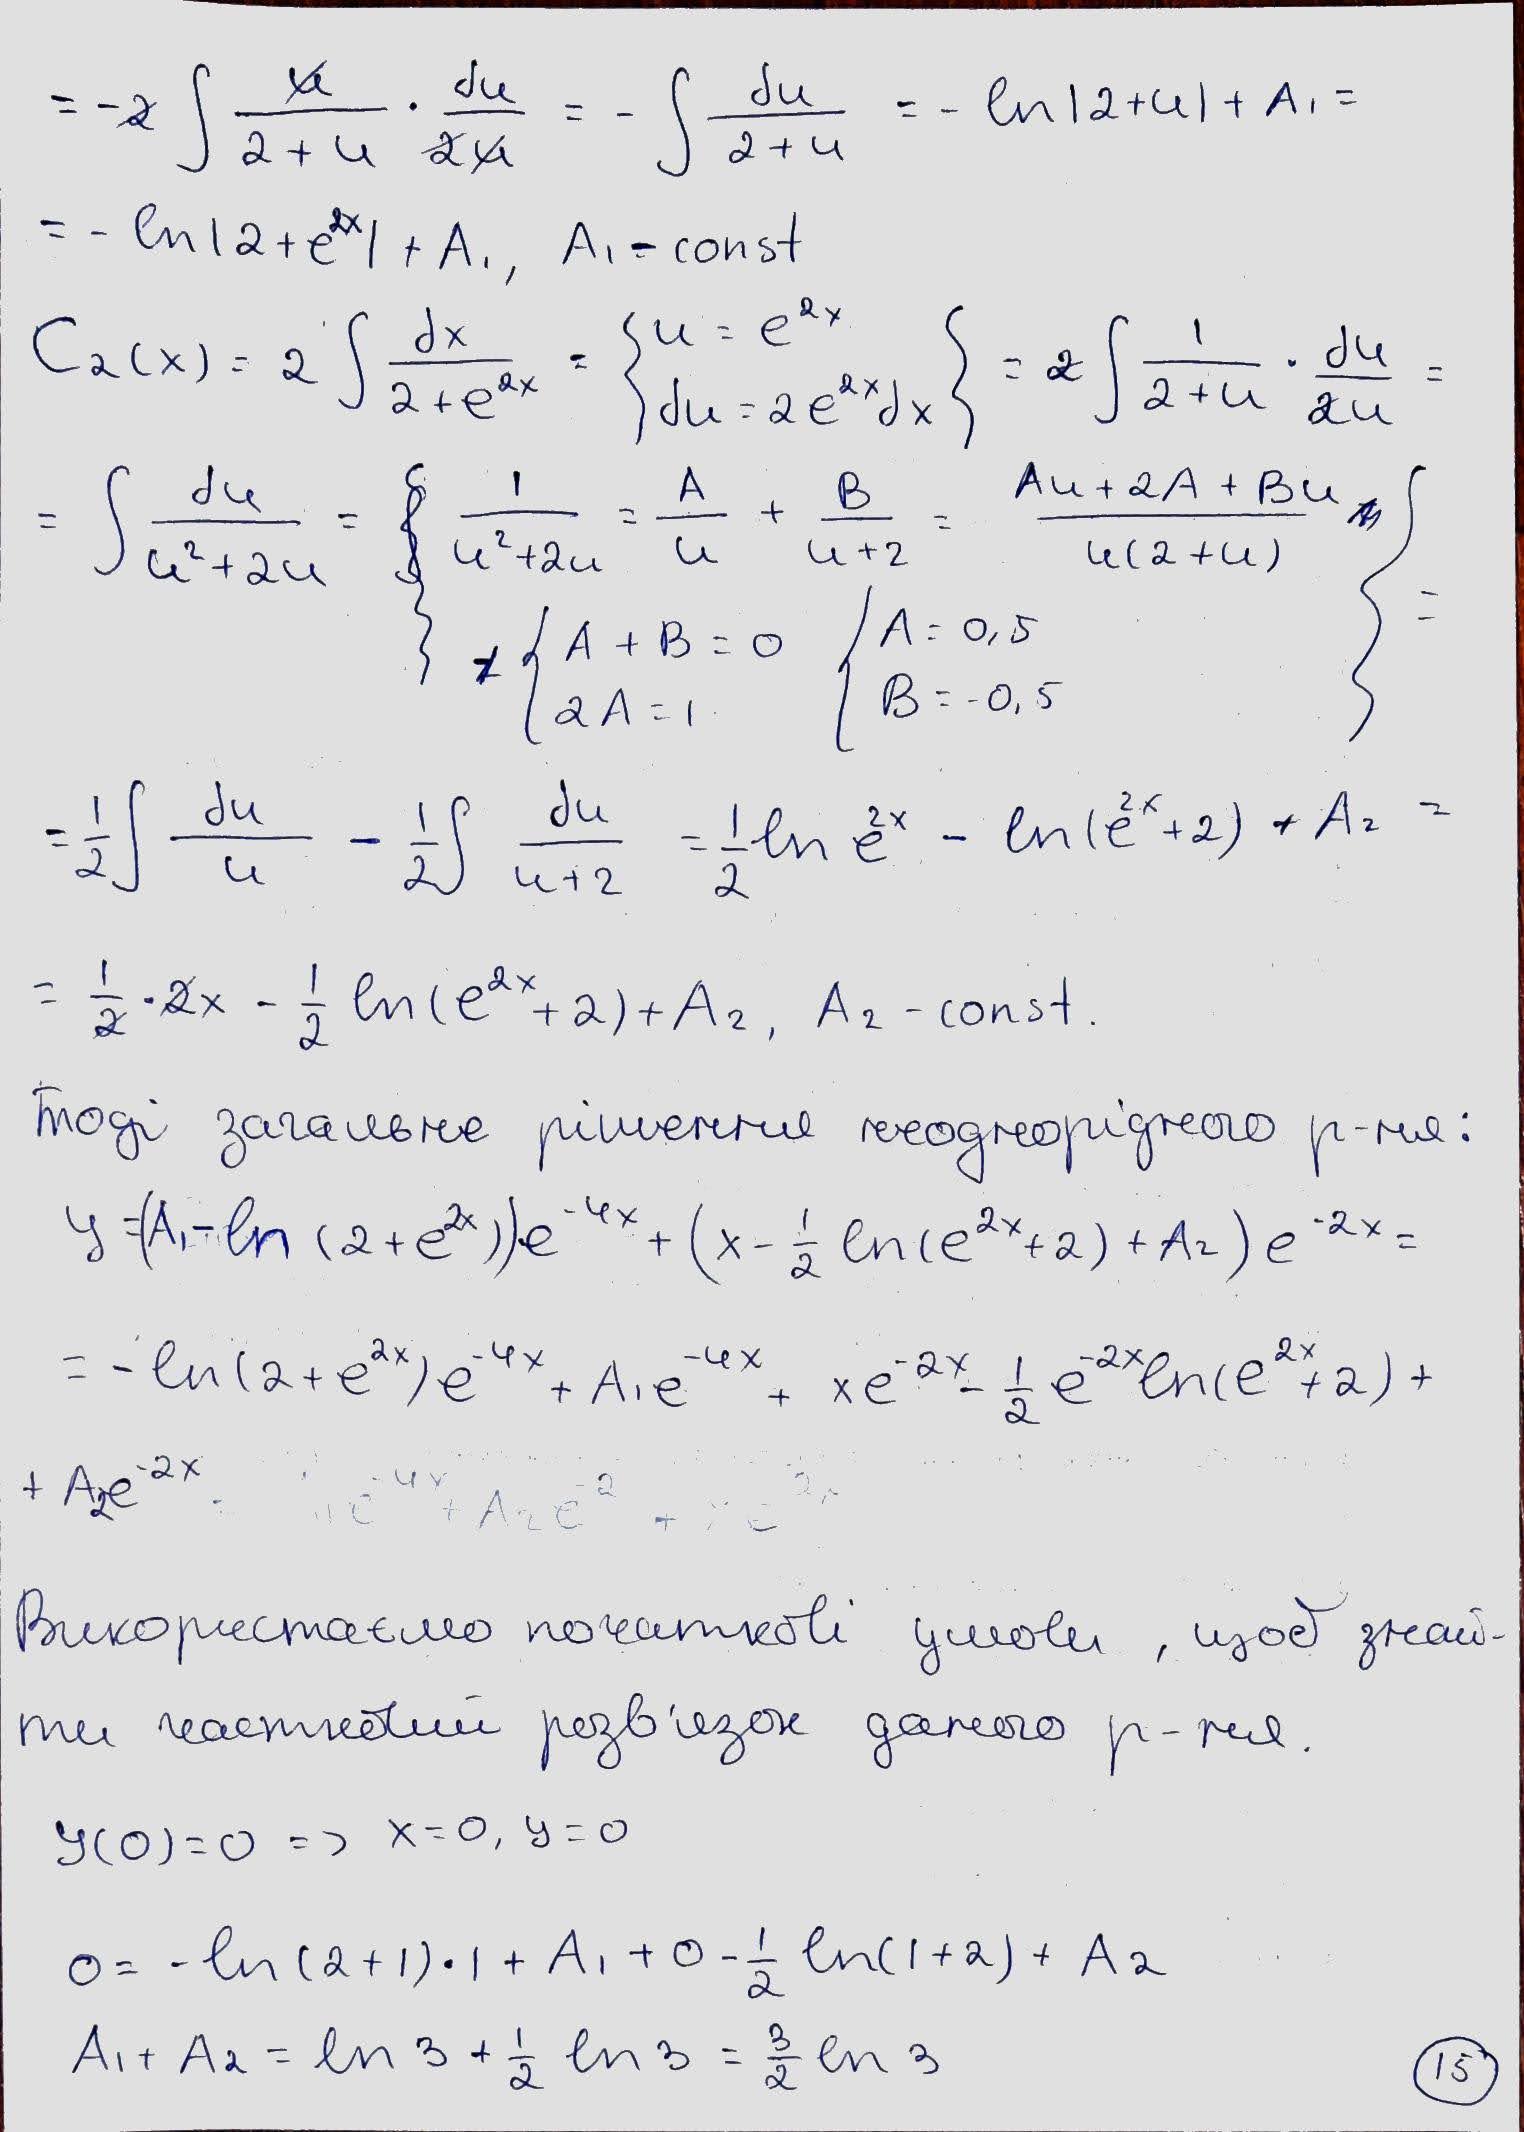 = -2 ∫ u/(2+u) · du/(2u) = - ∫ du/(2+u) = - ln|2+u| + A₁ =
= - ln|2+e^{2x}| + A₁, A₁ - const
C₂(x) = 2 ∫ dx/(2+e^{2x}) = { u = e^{2x} du = 2e^{2x}dx } = 2 ∫ 1/(2+u) · du/(2u) =
= ∫ du/(u²+2u) = { 1/(u²+2u) = A/u + B/(u+2) = (Au+2A+Bu)/(u(2+u)) } =
{ A + B = 0 { A = 0,5
2A = 1 B = -0,5
= 1/2 ∫ du/u - 1/2 ∫ du/(u+2) = 1/2 ln e^{2x} - ln(e^{2x}+2) + A₂ =
= 1/2 · 2x - 1/2 ln(e^{2x}+2) + A₂, A₂ - const.
Тоді загальне рішення неоднорідного р-ня:
y = (A₁ - ln(2+e^{2x}))e^{-4x} + (x - 1/2 ln(e^{2x}+2) + A₂) e^{-2x} =
= - ln(2+e^{2x})e^{-4x} + A₁e^{-4x} + xe^{-2x} - 1/2 e^{-2x}ln(e^{2x}+2) +
+ A₂e^{-2x}
Використаємо початкові умови, щоб знай-
ти частковий розв'язок даного р-ня.
y(0)=0 => x=0, y=0
0 = - ln(2+1)·1 + A₁ + 0 - 1/2 ln(1+2) + A₂
A₁ + A₂ = ln 3 + 1/2 ln 3 = 3/2 ln 3
15